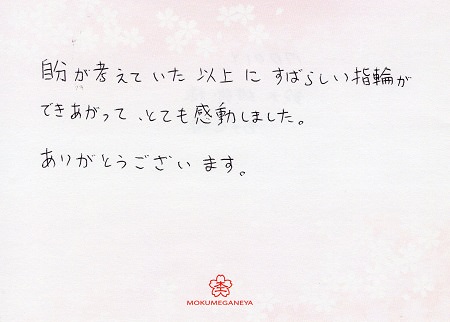 自分が考えていた以上にすばらしい指輪が
できあがって、とても感動しました。
ありがとうございます。
MOKUMEGANEYA